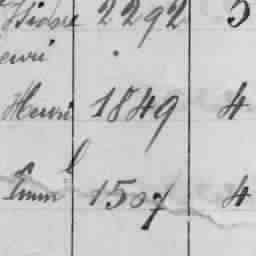 Isidore 2292 5
enri
Henri 1849 4
1507 4